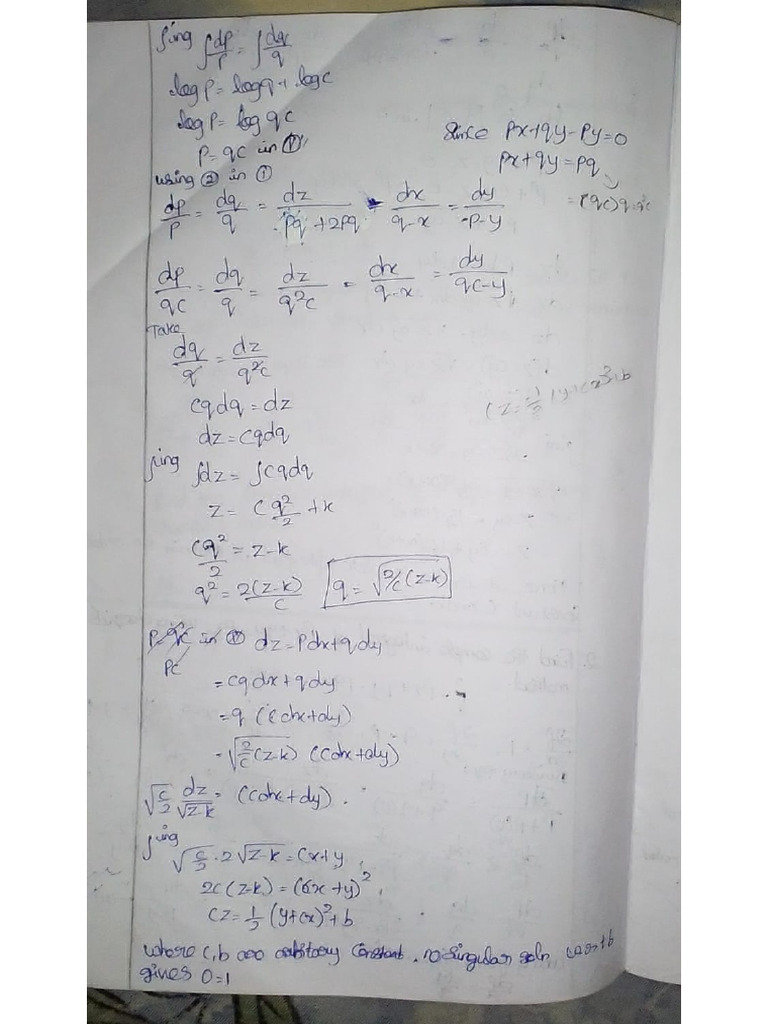 ∫ing ∫dp/p = ∫dq/q
log p = log q + log c
log p = log qc
p = qc in ①
Since px+qy-py=0
px+qy=pq
using ② in ①
dp/p = dq/q = dz/pq+2pq = dx/q-x = dy/-p-y
= (qc)q=q²c
dp/qc = dq/q = dz/q²c = dx/q-x = dy/qc-y
Take
dq/q = dz/q²c
cq dq = dz
dz = cq dq
(z=1/2 (y+cx)²+b
∫ing ∫dz = ∫cq dq
z = c q²/2 + k
cq²/2 = z-k
q² = 2(z-k)/c q = √2/c (z-k)
p=qc in ① dz = pdx+qdy
pc
= cqdx+qdy
= q (cdx+dy)
= √2/c (z-k) (cdx+dy)
√c/2 dz/√z-k = (cdx+dy).
∫ing
√c/2 · 2√z-k = cx+y
2c(z-k) = (cx+y)²
cz = 1/2 (y+cx)²+b
where c, b are arbitrary constant. no singular soln
gives 0=1